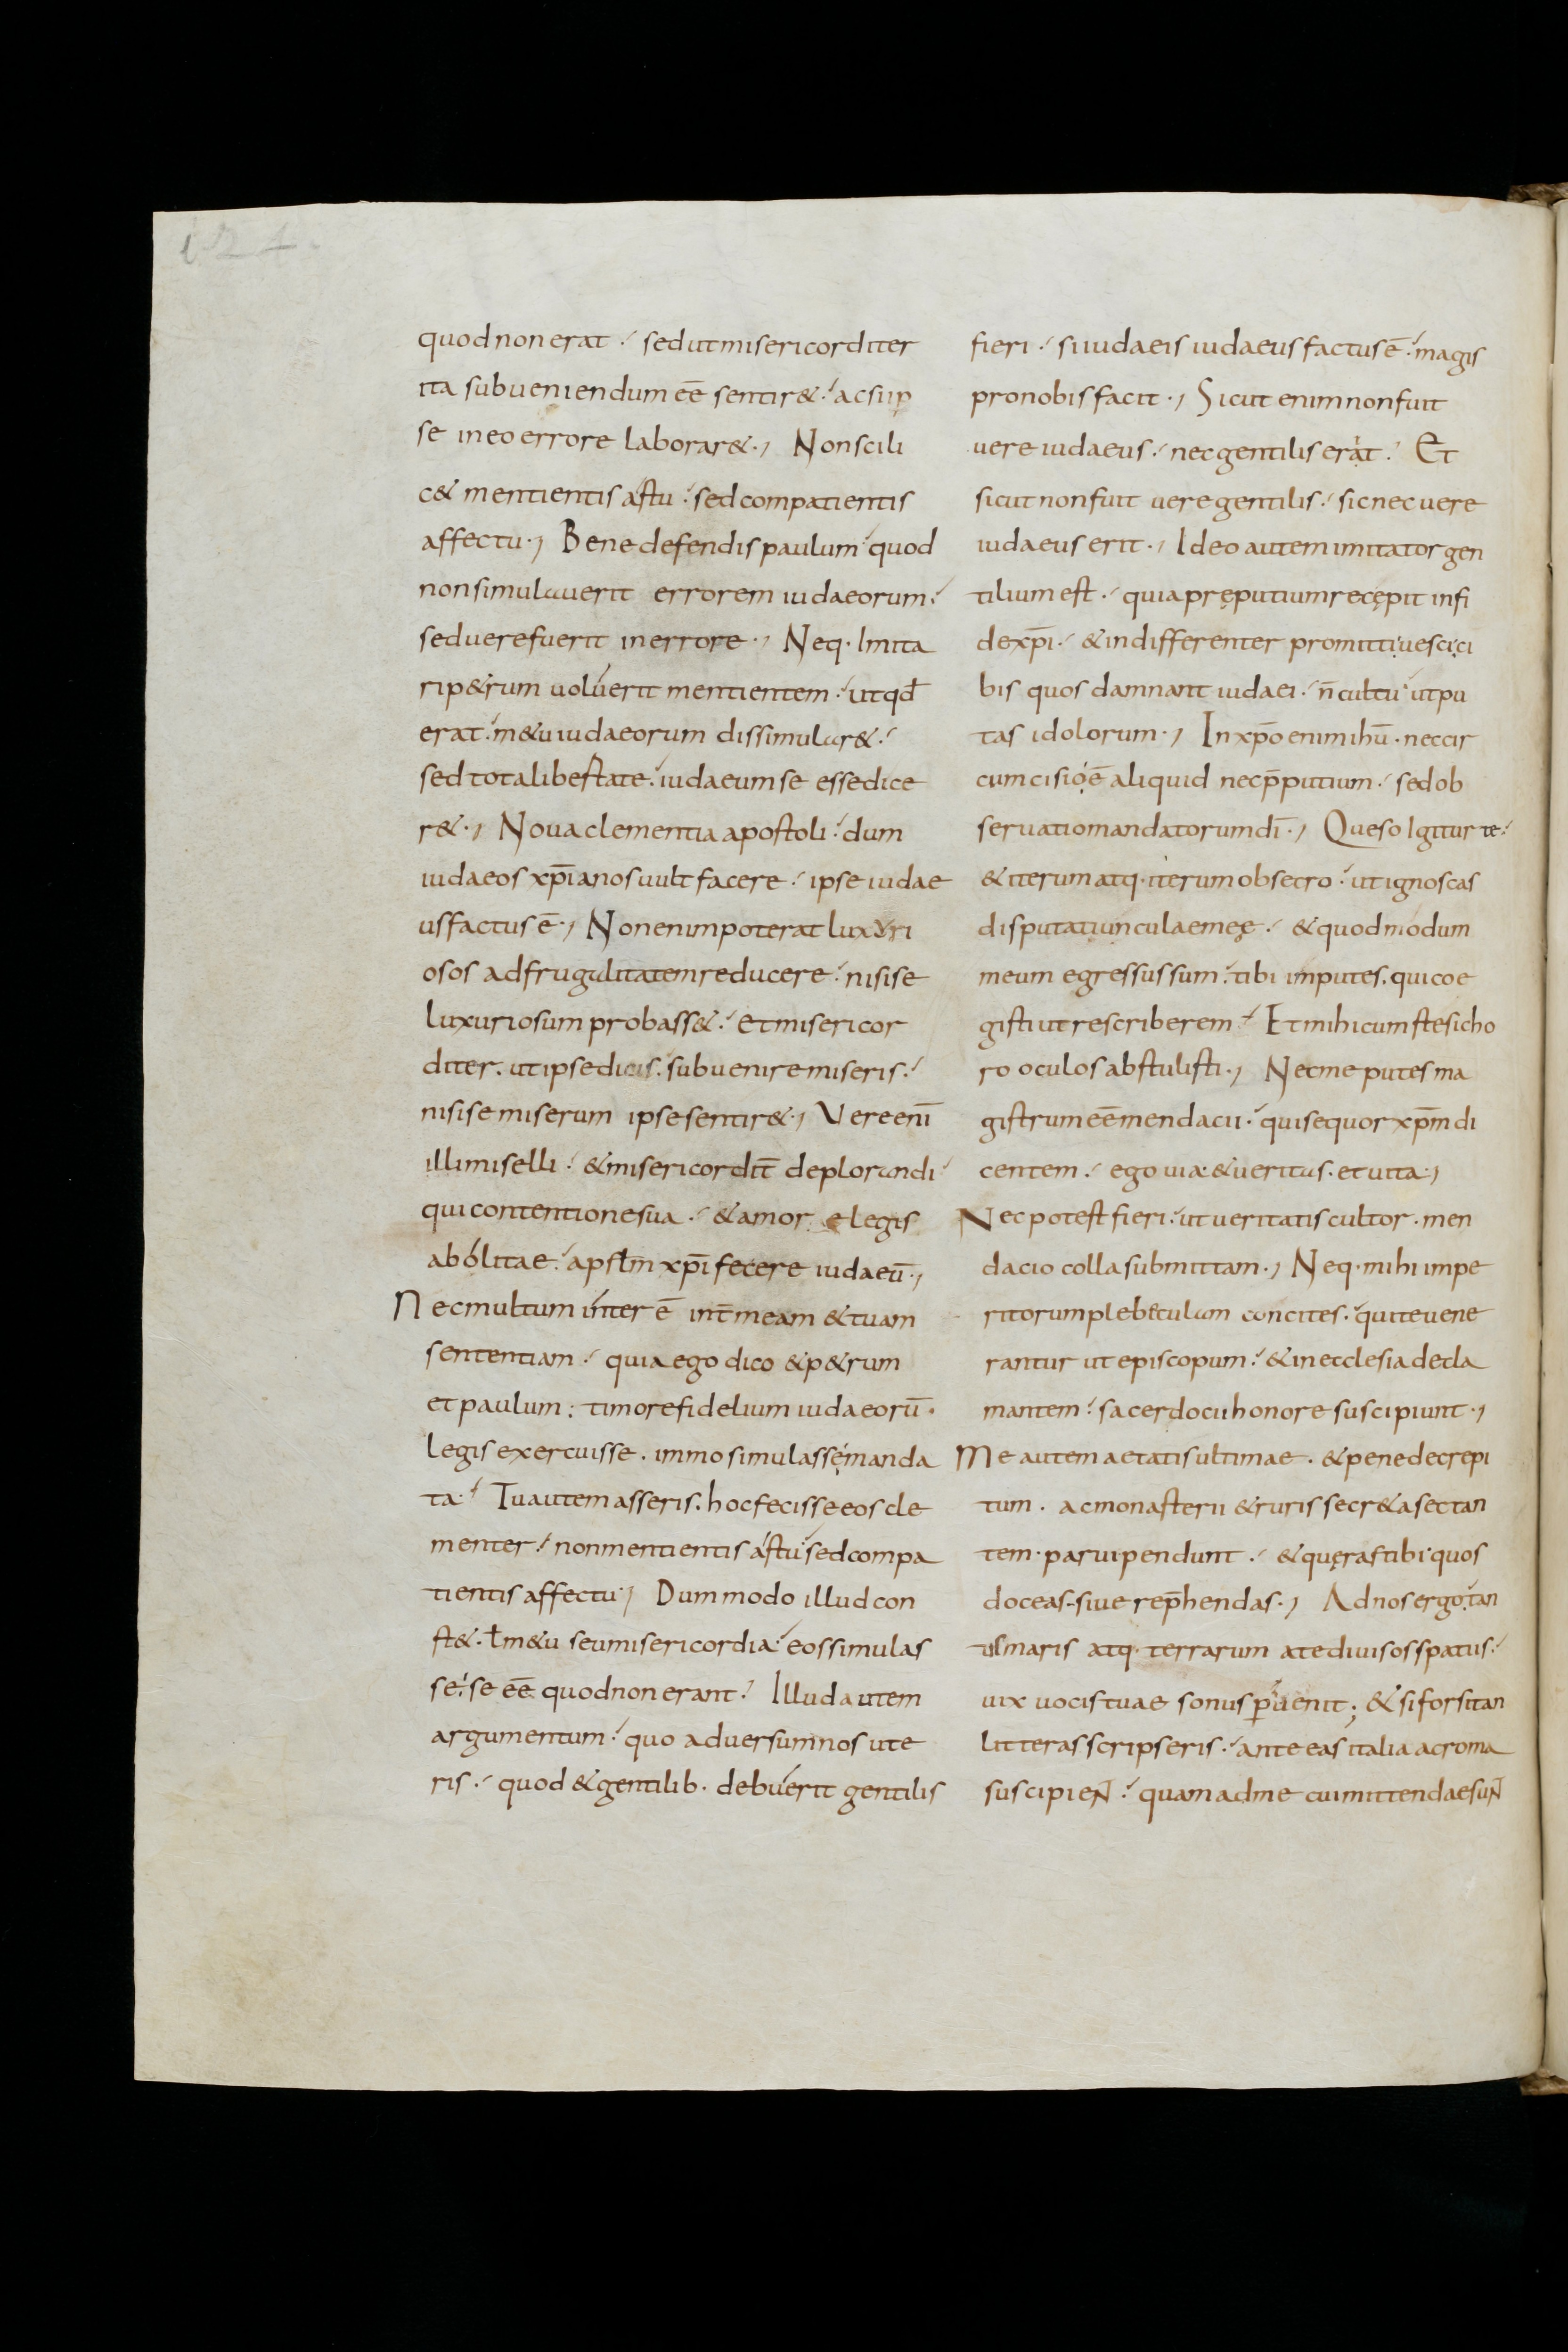 121.
quod non erat · sed ut misericorditer
ita subueniendum eē sentir& · ac si ip
se in eo errore laborar& · Non scili
c& mentientis astu · sed compatientis
affectu · Bene defendis paulum · quod
non simulauerit errorem iudaeorum ·
sed uere fuerit in errore · Neq· Imita
ri p&rum uoluerit mentientem · ut qđ
erat · m&u iudaeorum dissimular& ·
sed tota libestate · iudaeum se esse dice
r& · Noua clementia apostoli · dum
iudaeos xp̄ianos uult facere · ipse iudae
us factus ē · Non enim poterat luxuri
osos ad frugalitatem reducere · nisi se
luxuriosum probass& · et misericor
diter · ut ipse dicis · subuenire miseris ·
nisi se miserum ipse sentir& · Vere enī
illi miselli · & misericordit̄ deplorandi ·
qui contentione sua · & amore legis
abolitae · apstl̄m xp̄i fecere iudaeū ·
Nec multum inter ē int̄ meam & tuam
sententiam · quia ego dico & p&rum
et paulum : timore fidelium iudaeorū ·
legis exercuisse · immo simulasse manda
ta · Tu autem asseris · hoc fecisse eos cle
menter · non mentientis astu · sed compa
tientis affectu · Dummodo illud con
st& · ł m&u seu misericordia · eos simulas
se · se eē quod non erant · Illud autem
argumentum · quo aduersum nos ute
ris · quod & gentilib· debuerit gentilis
fieri · si iudaeis iudaeus factus ē · magis
pro nobis facit · Sicut enim non fuit
uere iudaeus · nec gentilis erat · Et
sicut non fuit uere gentilis · sic nec uere
iudaeus erit · Ideo autem imitator gen
tilium est · quia pręputium recępit in fi
de xp̄i · & indifferenter promitti uesci ci
bis quos damnant iudaei · n̄ cultu · ut pu
tas idolorum · In xp̄o enim ihū · nec cir
cumcisio ē aliquid nec p̄putium · sed ob
seruatio mandatorum dī · Queso Igitur te ·
& iterum atq· iterum obsecro · ut ignoscas
disputatiunculae meę · & quod modum
meum egressus sum · tibi imputes · qui coe
gisti ut rescriberem · Et mihi cum stesicho
ro oculos abstulisti · Nec me putes ma
gistrum eē mendacii · qui sequor xp̄m di
centem · ego uia · & ueritas · et uita ·
Nec potest fieri · ut ueritatis cultor · men
dacio colla submittam · Neq· mihi impe
ritorum plebeculam concites · qui te uene
rantur ut episcopum · & in ecclesia decla
mantem · sacerdocii honore suscipiunt ·
Me autem aetatis ultimae · & pene decrepi
tum · ac monasterii & ruris secr&a sectan
tem · parui pendunt · & quęras tibi · quos
doceas · siue rep̄hendas · Ad nos ergo · tan
tis maris atq· terrarum a te diuisos spatiis ·
uix uocis tuae sonus p̱uenit ; & si forsitan
litteras scripseris · ante eas italia ac roma
suscipieNT · quam ad me cui mittendae suNT